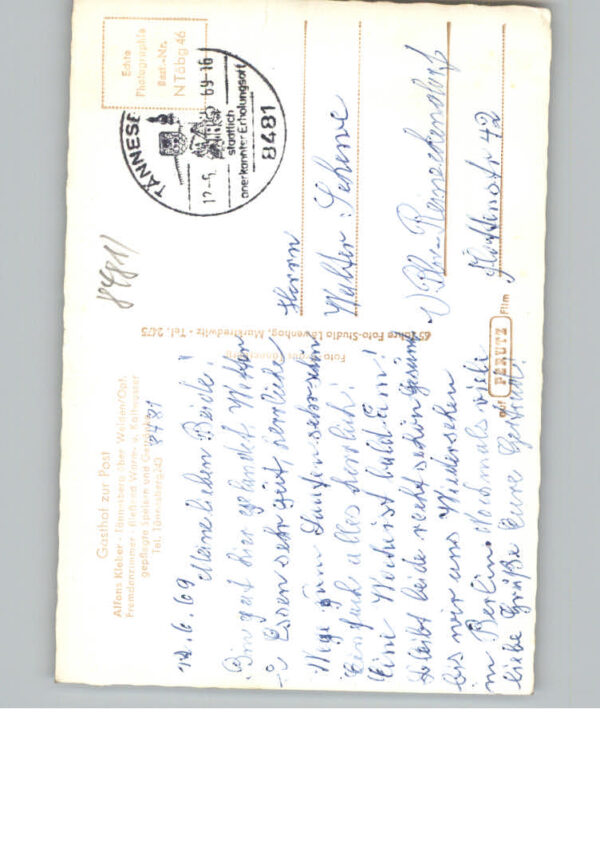 Gasthof zur Post
Alfons Kleber - Tännesberg über Weiden/Opf.
Fremdenzimmer - fließend Warm- u. Kaltwasser
gepflegte Speisen und Getränke
Tel. Tännesberg 243
8481
12.6.69
Meine lieben Beide!
Bin gut hier gelandet. Wetter
u Essen sehr gut, herrliche
Wege zum Laufen sehr schön
Einfach alles herrlich!
Eine Woche ist bald um!
Bleibt beide recht schön gesund
bis wir uns Wiedersehen
in Berlin. Nochmals viele
liebe Grüße Eure Gertrud!
Foto
65 Jahre Foto-Studio Löwenhag, Marktredwitz - Tel. 2475
auf PERUTZ Film
Echte
Photographie
Best.-Nr.
N Töbg 46
TÄNNESB
12-6. 69-16
staatlich
anerkannter Erholungsort
8481
8481
Herrn
Walter
Bln-Reineckendorf
42